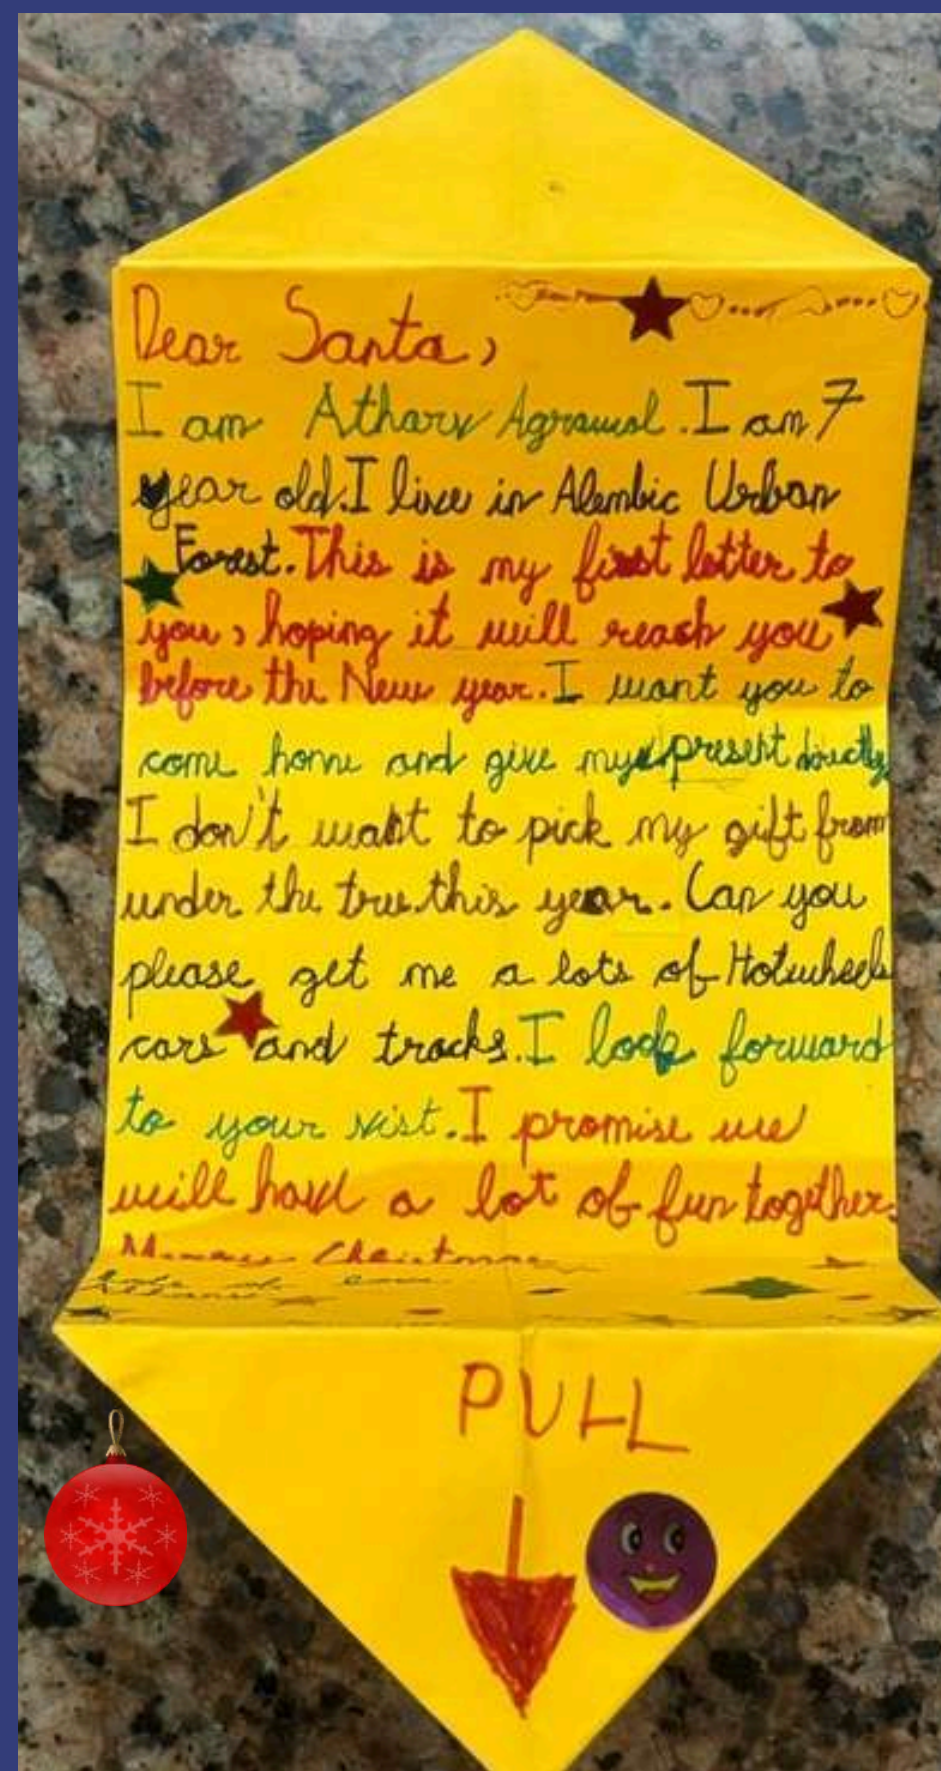 Dear Santa,
I am Atharv Agrawal. I am 7
year old. I live in Alembic Urban
Forest. This is my first letter to
you, hoping it will reach you
before the New year. I want you to
come home and give my present directly
I don't want to pick my gift from
under the tree this year. Can you
please get me a lots of Hotwheels
cars and tracks. I look forward
to your vist. I promise we
will have a lot of fun together.
Merry Christmas
PULL